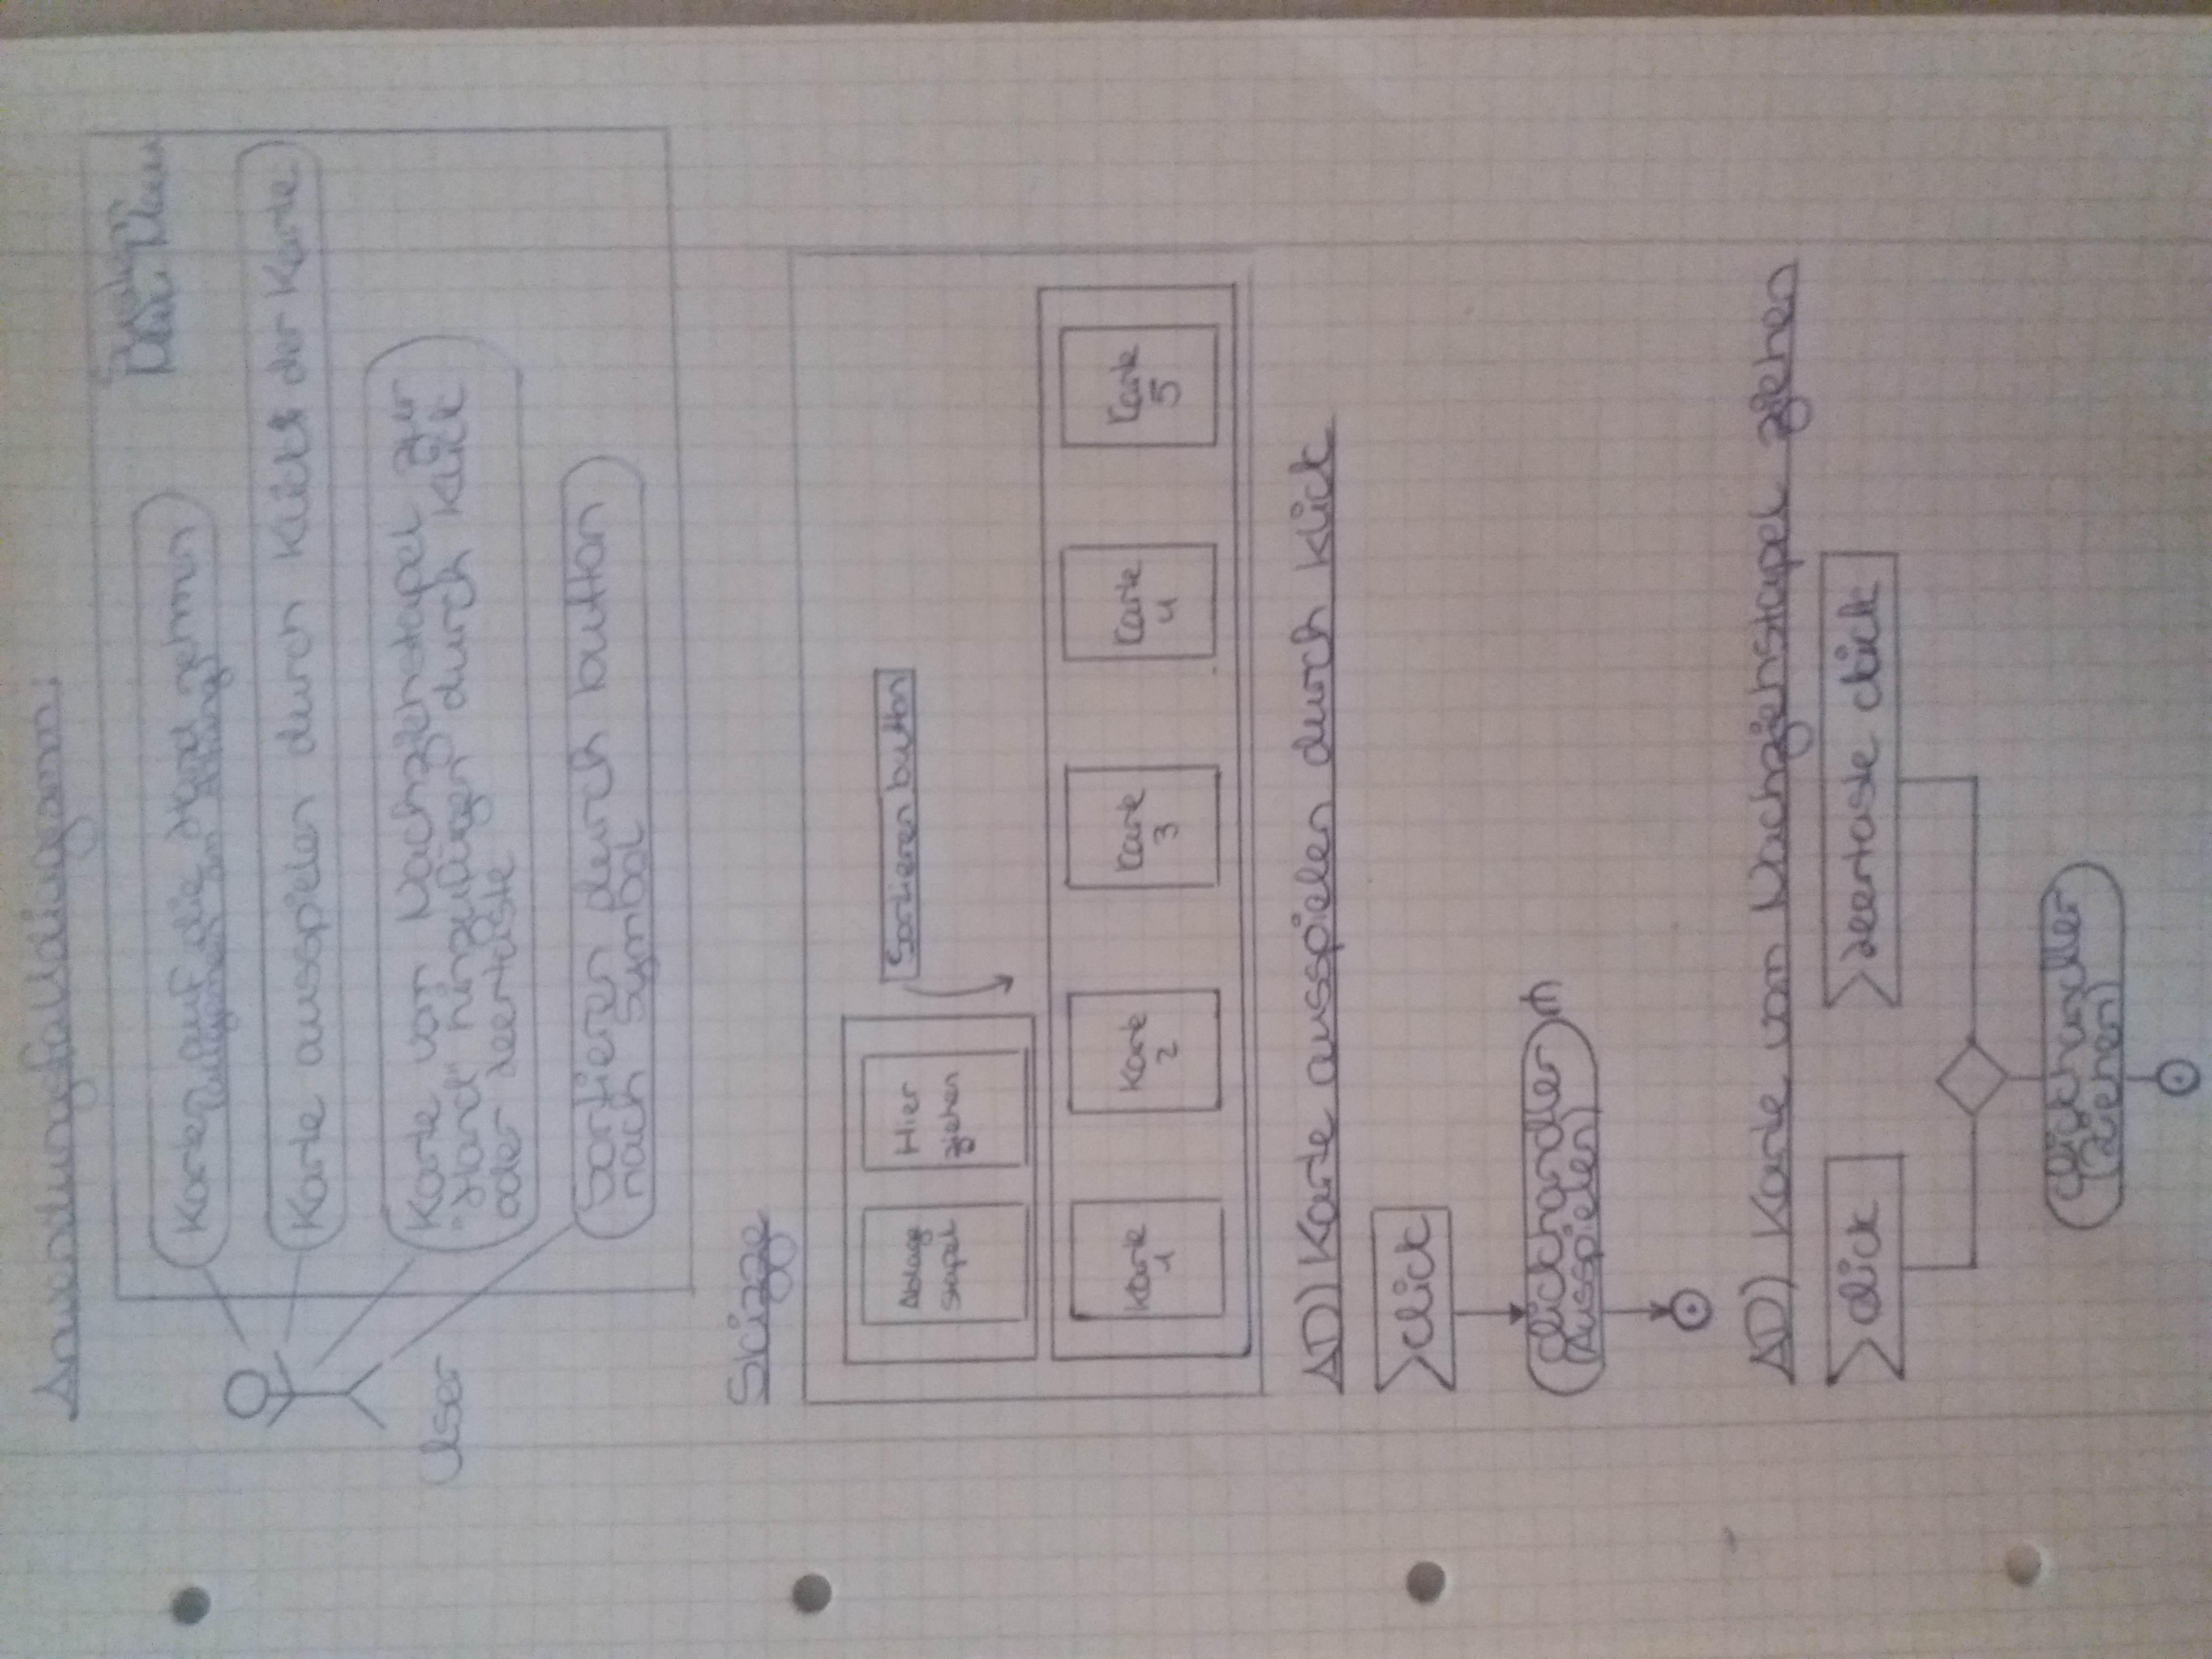 Anwendungsfalldiagramm:
System
Mau Mau
Karten auf die Hand nehmen
(allgemein am Anfang)
Karte ausspielen durch Klick der Karte
User
Karte vom Nachziehstapel zur
"Hand" hinzufügen durch Klick
oder Leertaste
Sortieren durch button
nach Symbol
Skizze
Ablage
stapel
Hier
ziehen
Sortieren button
Karte
1
Karte
2
Karte
3
Karte
4
Karte
5
AD) Karte ausspielen durch Klick
click
clickhandler
(Ausspielen)
AD) Karte vom Nachziehstapel ziehen
click
Leertaste click
clickhandler
(Ziehen)